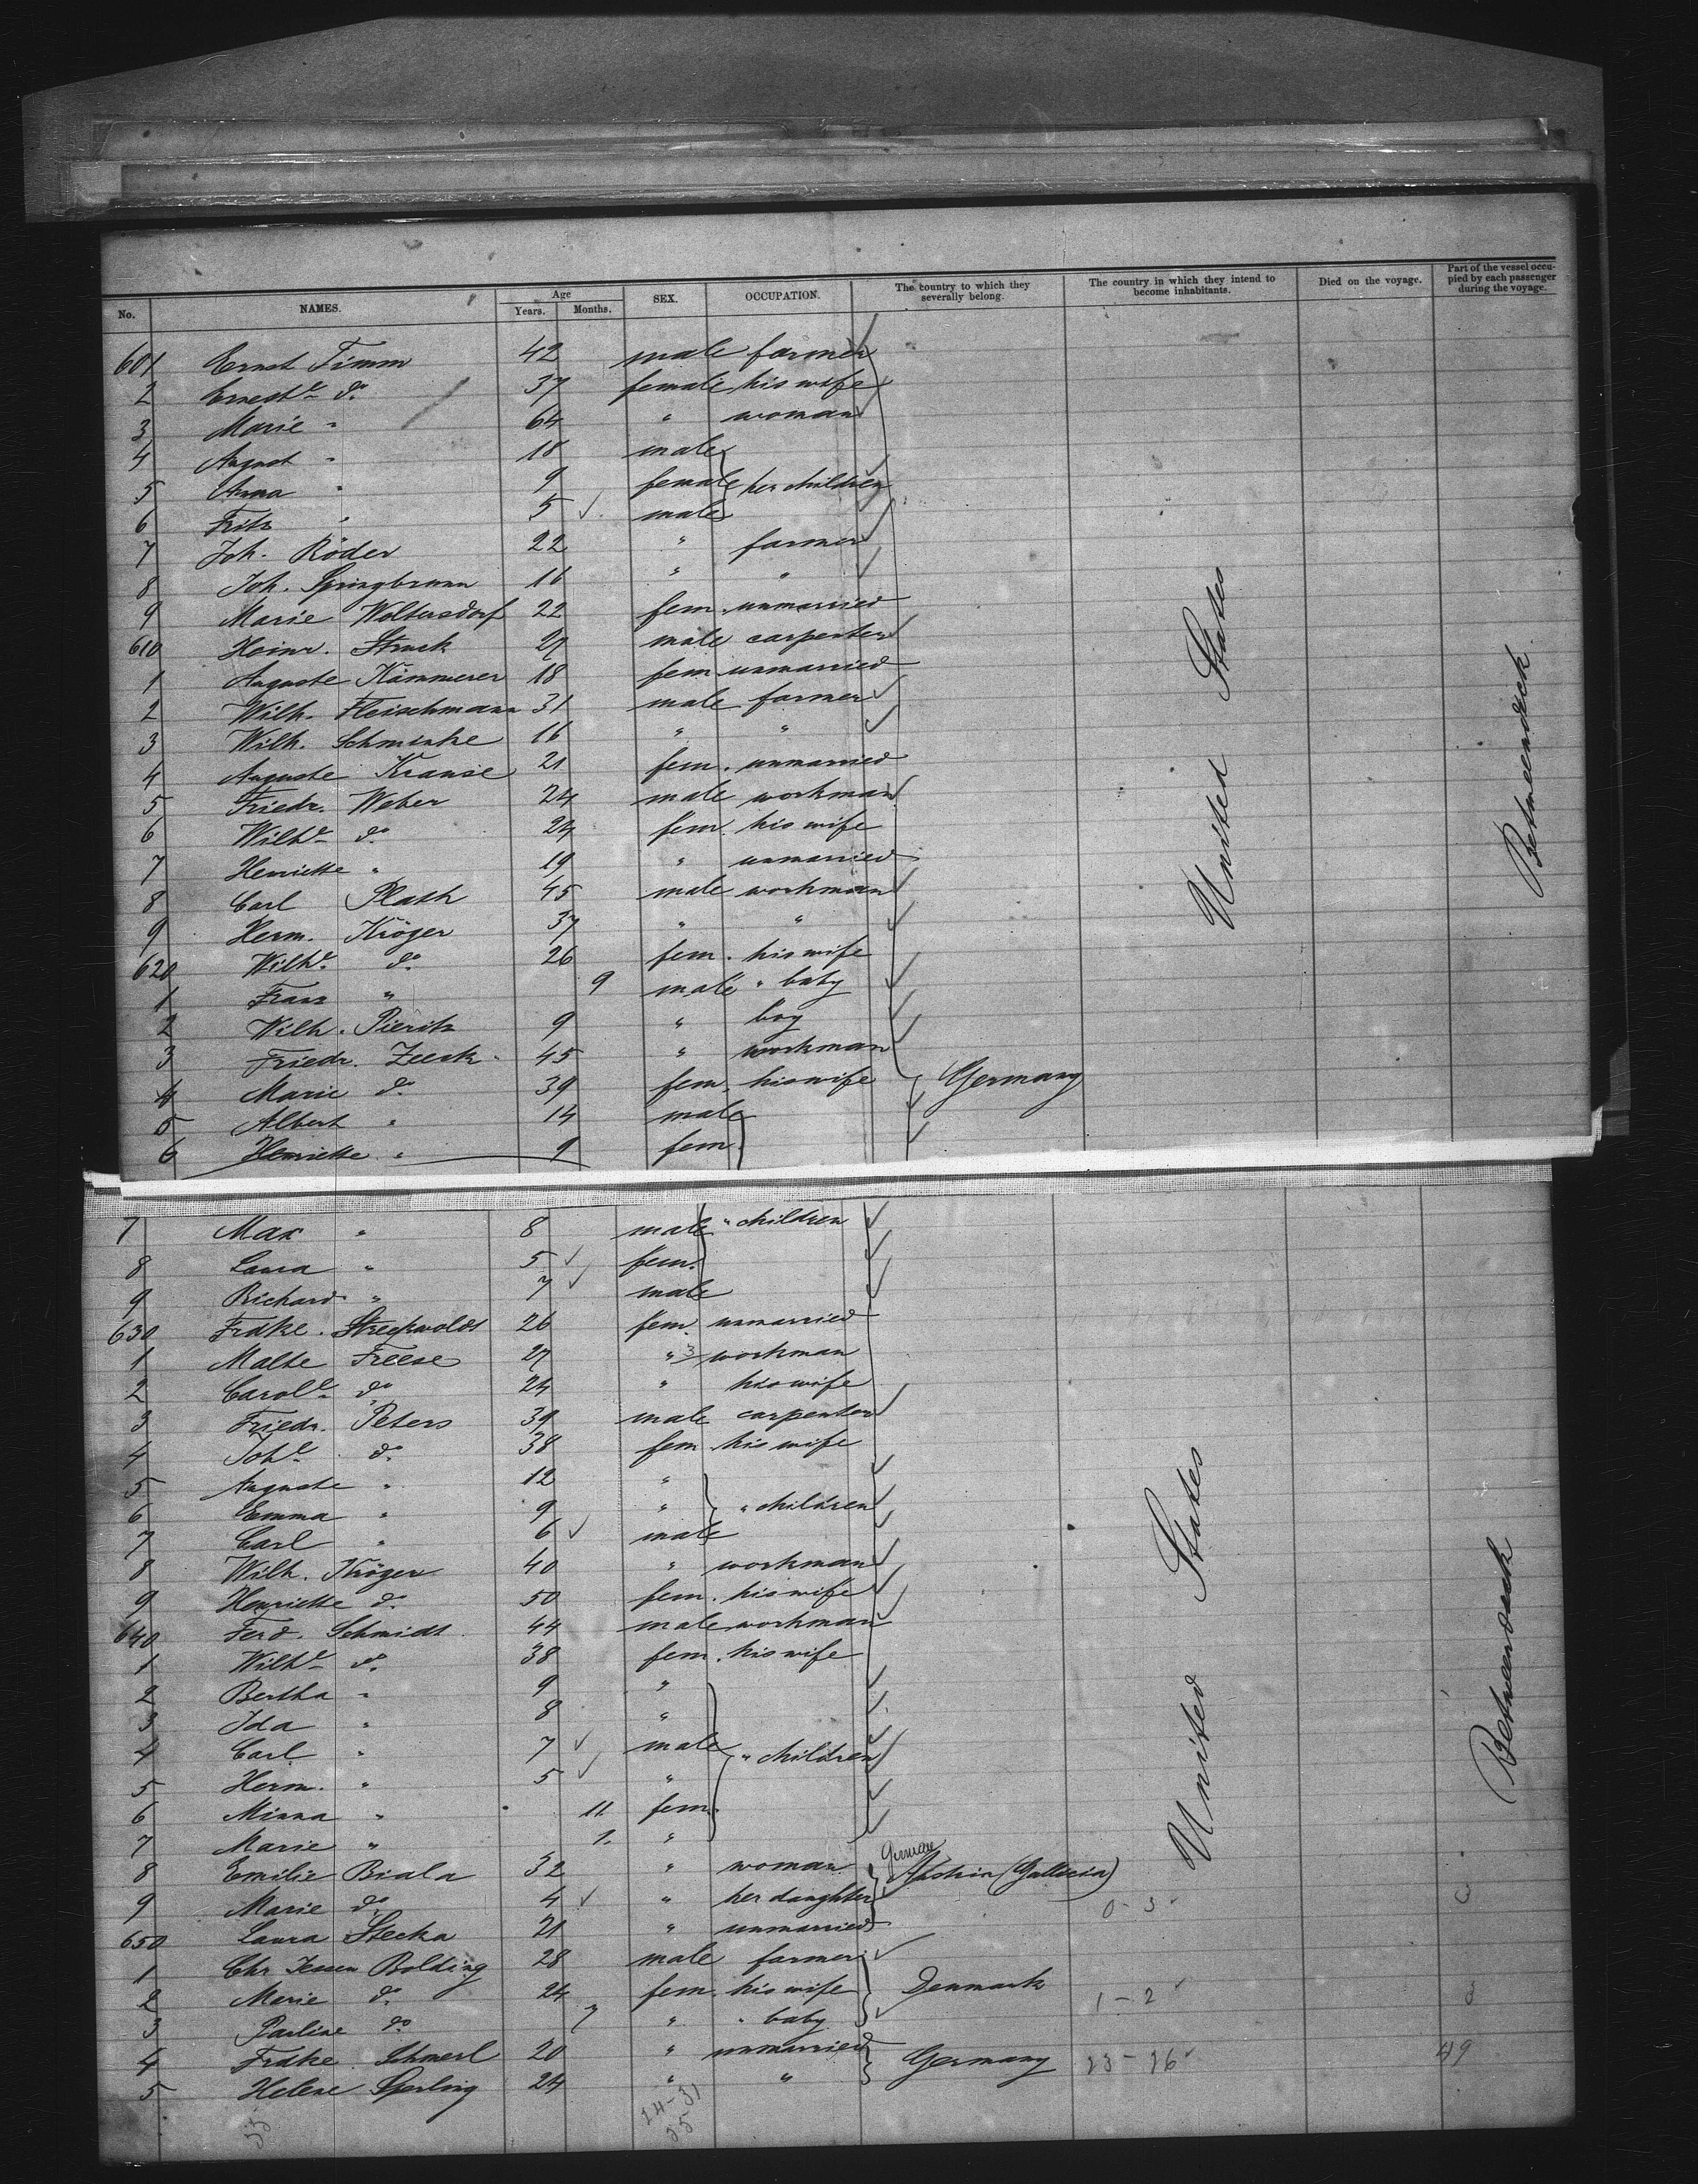 No. NAMES. Age Years. Months. SEX. OCCUPATION. The country to which they severally belong. The country in which they intend to become inhabitants. Died on the voyage. Part of the vessel occupied by each passenger during the voyage.
601 Ernst Timm 42 male farmer
2 Ernste do 37 female his wife
3 Marie " 64 " woman
4 August " 18 male
5 Anna " 9 female her children
6 Fritz " 5 male
7 Joh. Röder 22 " farmer
8 Joh. Springbrunn 16 " "
9 Marie Woltersdorf 22 fem. unmarried
610 Heinr. Struck 27 male carpenter
1 Auguste Kämmerer 18 fem unmarried
2 Wilh. Fleischmann 31 male farmer
3 Wilh. Schminke 16 " "
4 Auguste Krause 21 fem. unmarried
5 Friedr. Weber 24 male workman
6 Wilhe do 24 fem. his wife
7 Henriette " 19 " unmarried
8 Carl Plath 45 male workman
9 Herm. Kröger 37 " "
620 Wilhe. do 26 fem. his wife
1 Franz " 9 male " baby
2 Wilh. Pieritz 9 " boy
3 Friedr. Zeeck 45 " workman
4 Marie do 39 fem. his wife Germany
5 Albert " 14 male
6 Henriette " 9 fem.
United States
Betweendeck
7 Max " 8 male " children
8 Laura " 5 fem.
9 Richard " 7 male
630 Frdke. 26 fem. unmarried
1 Malte Freese 27 " 3 workman
2 Carole do 24 " his wife
3 Friedr. Peters 39 male carpenter
4 Johe do 38 fem his wife
5 Auguste " 12 "
6 Emma " 9 " " children
7 Carl " 6 male
8 Wilh. Kröger 40 " workman
9 Henriette do 50 fem. his wife
640 Ferd. Schmidt 44 male workman
1 Wilhe do 38 fem. his wife
2 Bertha " 9 "
3 Ida " 8 "
4 Carl " 7 male " children
5 Herm. " 5 "
6 Minna " 11 fem.
7 Marie " 1. "
8 Emilie Biala 32 " woman Austria (Gallicia)
9 Marie do 4 " her daughter 0-3
650 Laura Stecka 21 " unmarried
1 Chr Jessen Bolding 28 male farmer
2 Marie do 24 fem. his wife Denmark 1-2 3
3 Pauline do 7 " " baby
4 Frdke. Schmerl 20 " unmarried Germany 23-26 49
5 Helene Sperling 24 " "
United States
Betweendeck
55
24-31